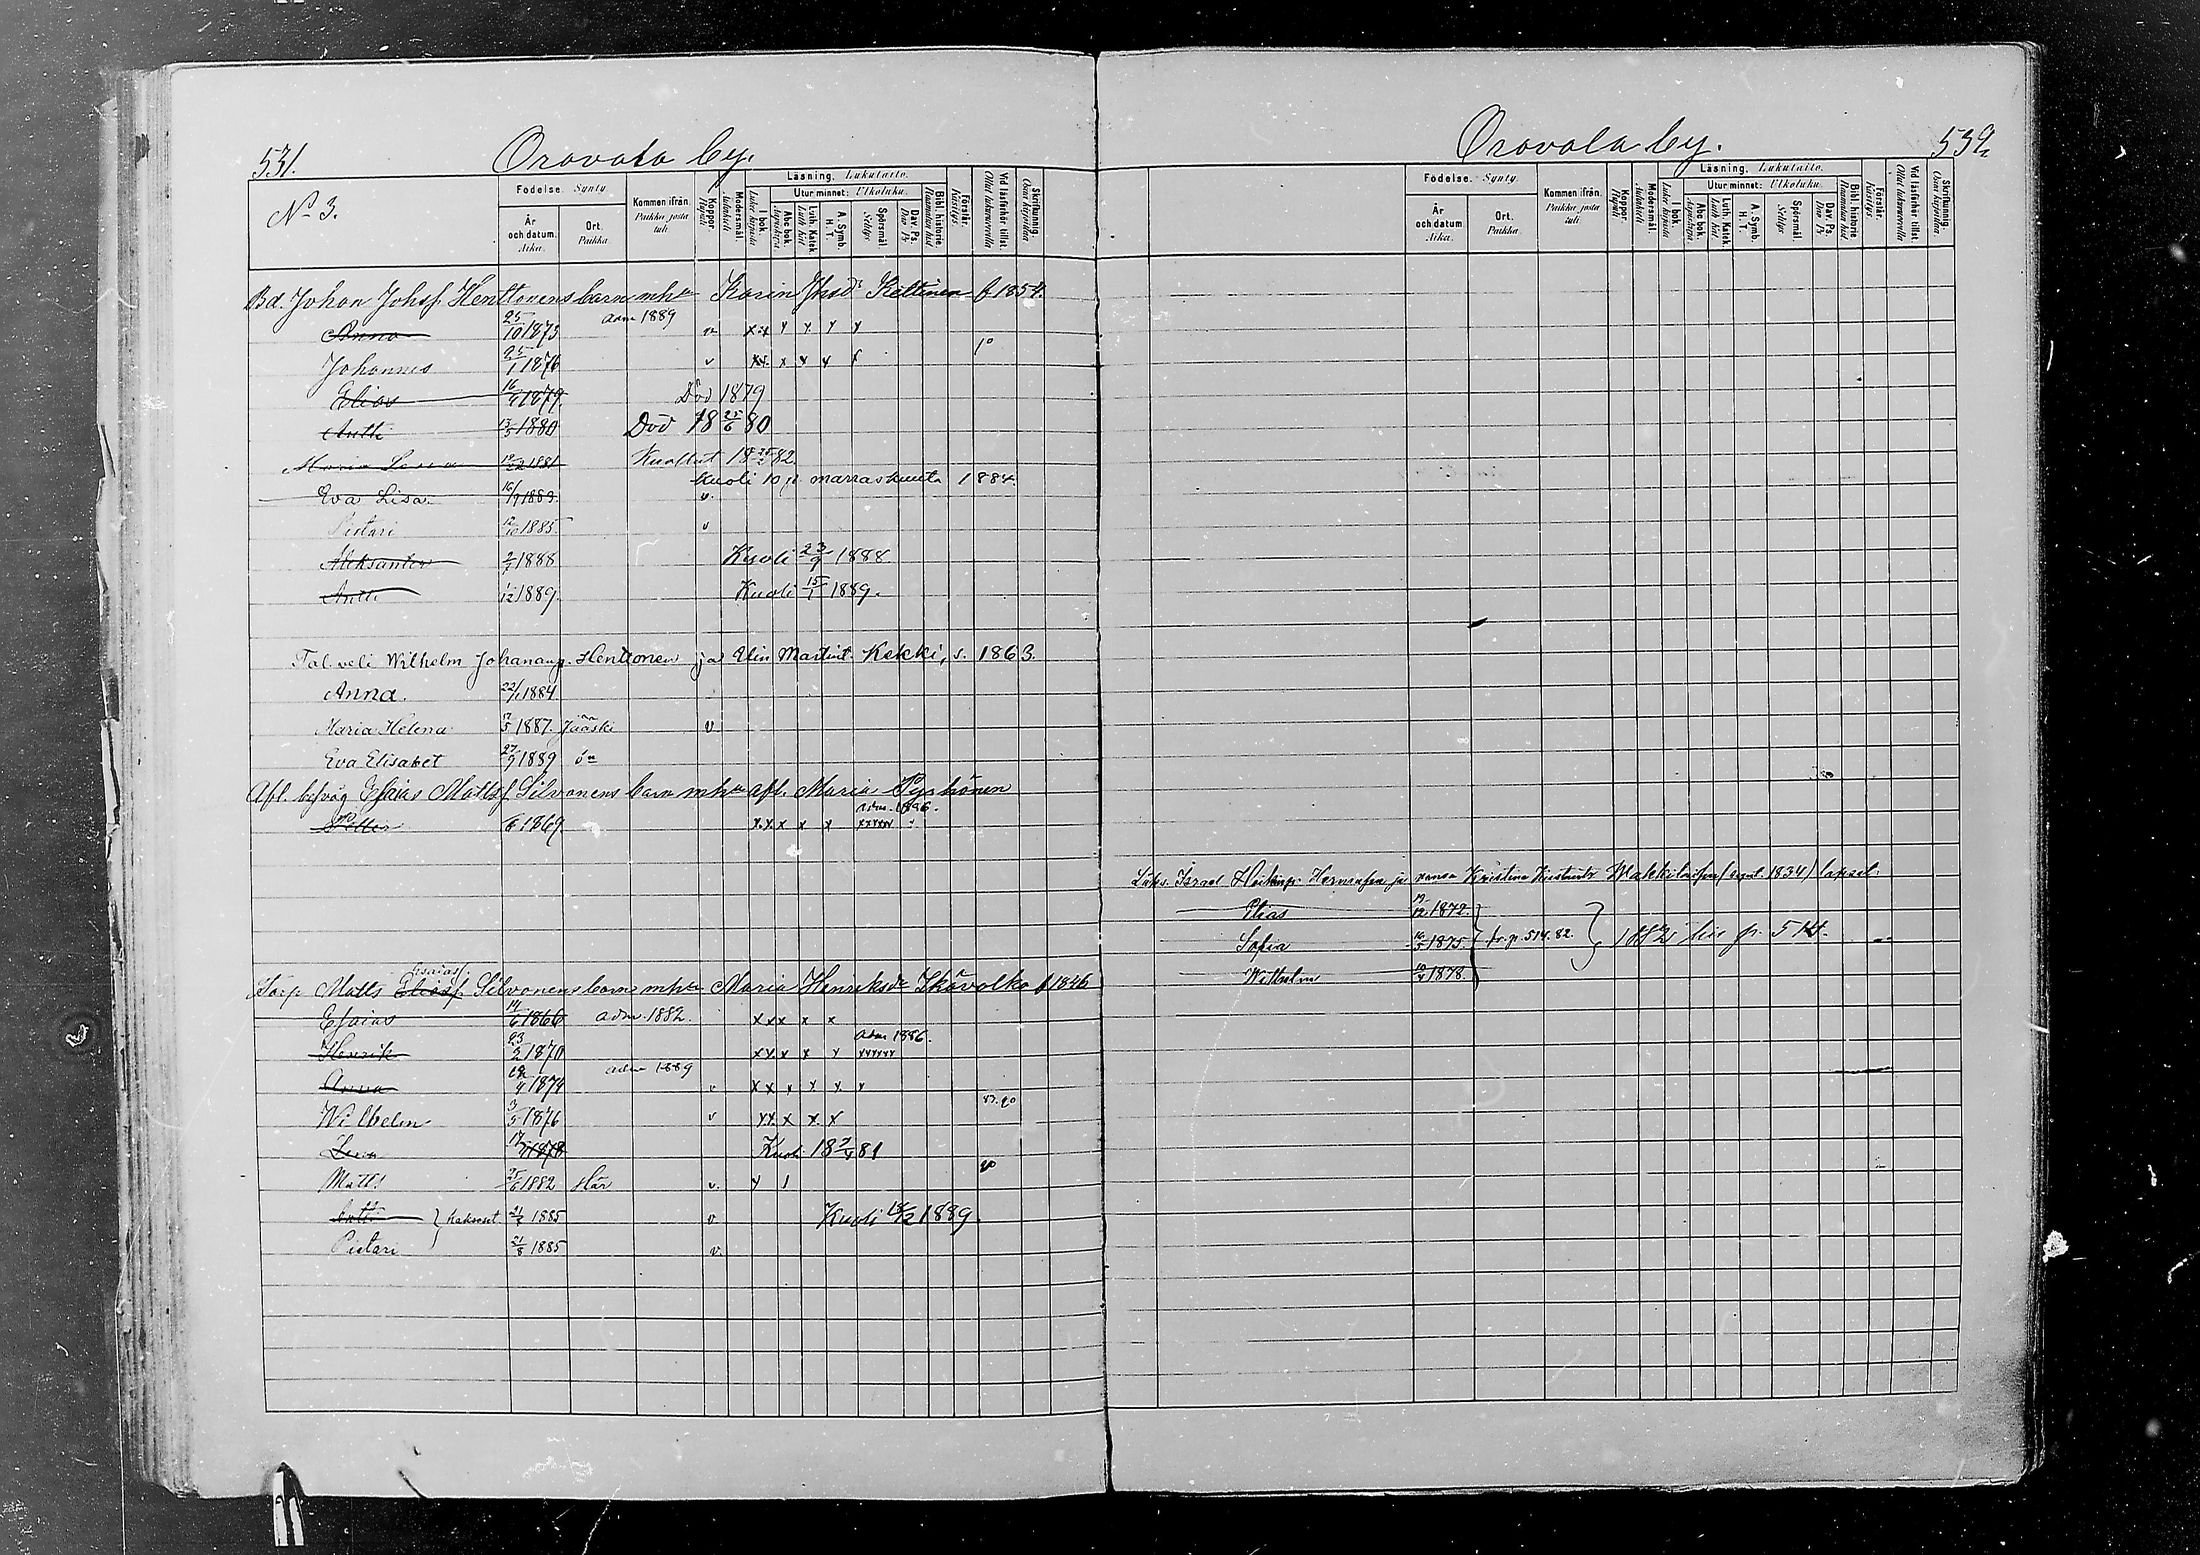 531.
Oravala by.
No 3.
Födelse. Synty.
År och datum. Aika.
Ort. Paikka
Kommen ifrån. Paikka josta tuli.
Koppor. Rupuli
Modersmål. Äidinkieli
Läsning. Lukutaito.
I bok. Lukee kirjasta
Utur minnet: Ulkoluku.
Abc bok. Aapiskirja
Luth. Katek. Luth kat.
A. Symb. H. T.
Spörsmål Selitys.
Dav. Ps. Dav. Ps
Bibl. historie Raamatun hist
Förstår. Käsitys.
Vid läsförhör tillst. Ollut lukuvuorolla
Skrifkunnig. Osaa kirjoittaa
Bd. Johan Johsf. Henttonens barn mhu Karin Jhsdr Kettinen f. 1854.
Anna 25/10 1873 adm 1889 v x x y y y y
Johannes 25/1 1876 v x x x y y
Elias 16/ 1879. Död 1879
Antti 1880 Död 18 25/6 80
Maria Leena 1881 Kuollut 18 82
Eva Lisa. 16/9 1883 v. kuoli 10 p. marraskuuta 1884
Pietari 1885 v
Aleksanter 2/7 1888 Kuoli 23/9 1888
Antti 1/12 1889. Kuoli 15/1 1889.
Tal. veli Wilhelm Johananp. Henttonen ja Elin Martint. Kekki, s. 1863.
Anna. 22/1 1884
Maria Helena 17/5 1887. Jääski v
Eva Elisabet 27/9 1889
Afl. Esaias Mattsf. Silvonens barn mhu afl. Maria Pyyhönen
Petter 1869 x x x x x xxxxx adm. 1886.
Torp Matts Eliasf. Esaiasf. Silvonens barn mhu Maria Henriksdr f 1846
Esaias 14/6 1866 adm. 1882. x x x x x
Henrik 23/2 1870 x x x x y yyyyyy adm 1886.
Anna 1874 adm 1889 v x x y y y
Wilhelm 3/5 1876 v y y x x x
Leena 1878 Kuoli 18 2/4 81
Matts 25/6 1882 Här v. y
Antti } kaksoset. 21/8 1885 v Kuoli 1889.
Pietari 21/8 1885 v.
Oravala by.
532
Födelse. Synty.
År och datum Aika.
Ort. Paikka.
Kommen ifrån. Paikka josta tuli
Koppor. Rupuli
Modersmål. Äidinkieli
Läsning. Lukutaito.
I bok. Lukee kirjasta
Utur minnet: Ulkoluku.
Abc bok. Aapiskirja
Luth. Katek. Luth kat.
A. Symb. H. T.
Spörsmål. Selitys
Dav. Ps. Dav. Ps
Bibl. historie Raamatun hist
Förstår. Käsitys
Vid läsförhör tillst. Ollut lukuvuorolla
Skrifkunnig. Osaa kirjoittaa
Israel Heikinp. ja vaimo Kristina (synt. 1834) lapset.
Elias 1872.
Sofia 1875. fr. p. 514. 82.
Wilhelm 1878